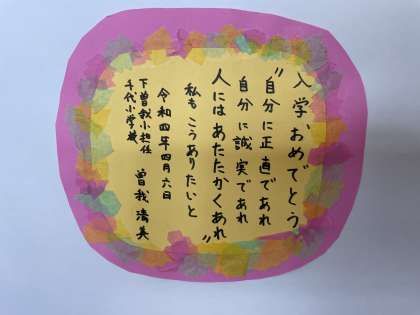 入学、おめでとう
"自分に正直であれ
自分に誠実であれ
人にはあたたかくあれ"
私もこうありたいと
令和四年四月六日
下曽我小担任
千代小学蔵
曽我清美